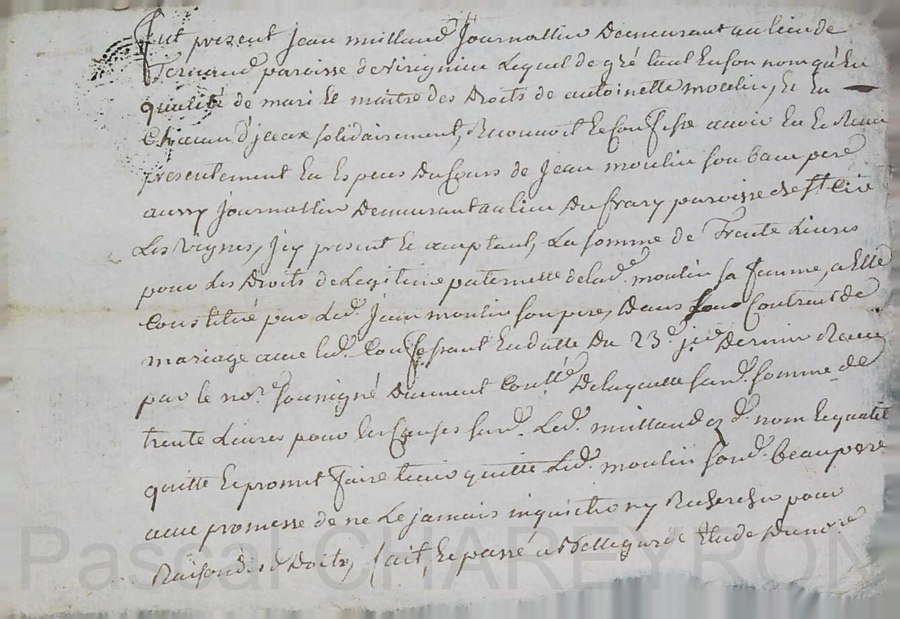 fut present jean millaud journallier demeurant au lieu de
paroisse de virignin lequel de gré tant en son nom qu'en
qualité de mari et maitre des droits de antoinette moulin, et en
chacun d'jceux solidairement, a reconnoit et confesse avoir eu et receu
presentement en especes du cours de jean moulin son beau pere
aussy journallier demeurant au lieu du frary paroisse de st
les vignes, jcy present et acceptant, la somme de trente livres
pour les droits de legitime paternelle de lad.e moulin sa femme, a elle
constitué par led. jean moulin son pere, dans leur contract de
mariage avec led. confessant en datte du 23.e dernier receu
par le no.re soussigné duement coll.é de laquelle susd. somme de
trente livres pour les causes susd. led. millaud nom le quatit
quitte et promet faire tenir quitte led. moulin sond. beau pere
avec promesse de ne le jamais inquietter ny rechercher pour
raison desd. droits, fait et passé a bellegarde etude du no.re
Pascal CHAREYRON